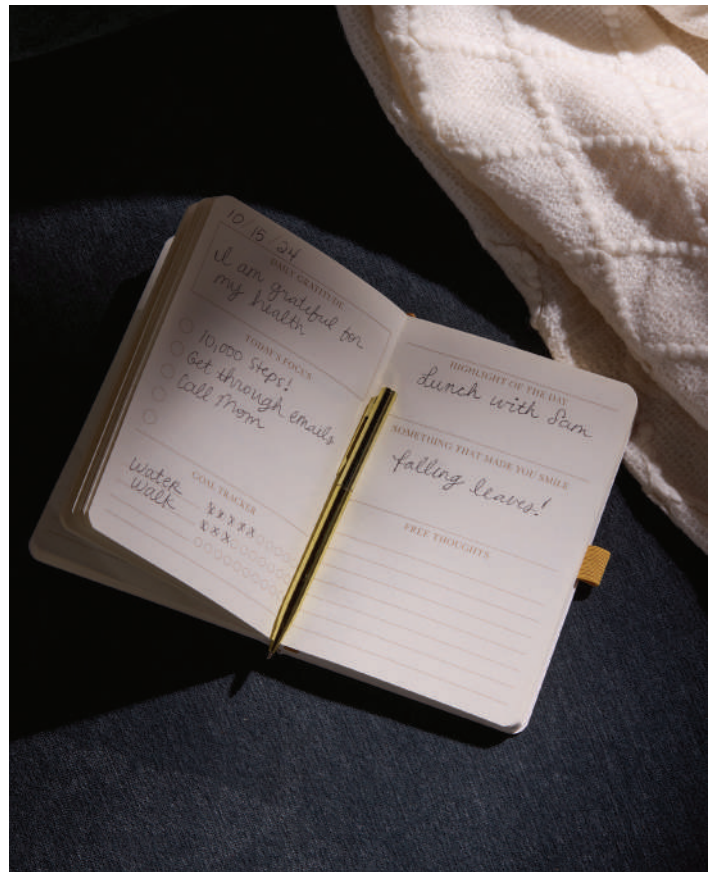 10/15/24
DAILY GRATITUDE
I am grateful for
my health
TODAY'S FOCUS
10,000 Steps!
Get through emails
Call Mom
GOAL TRACKER
Water xxxxx
Walk xxx
HIGHLIGHT OF THE DAY
Lunch with Sam
SOMETHING THAT MADE YOU SMILE
falling leaves!
FREE THOUGHTS